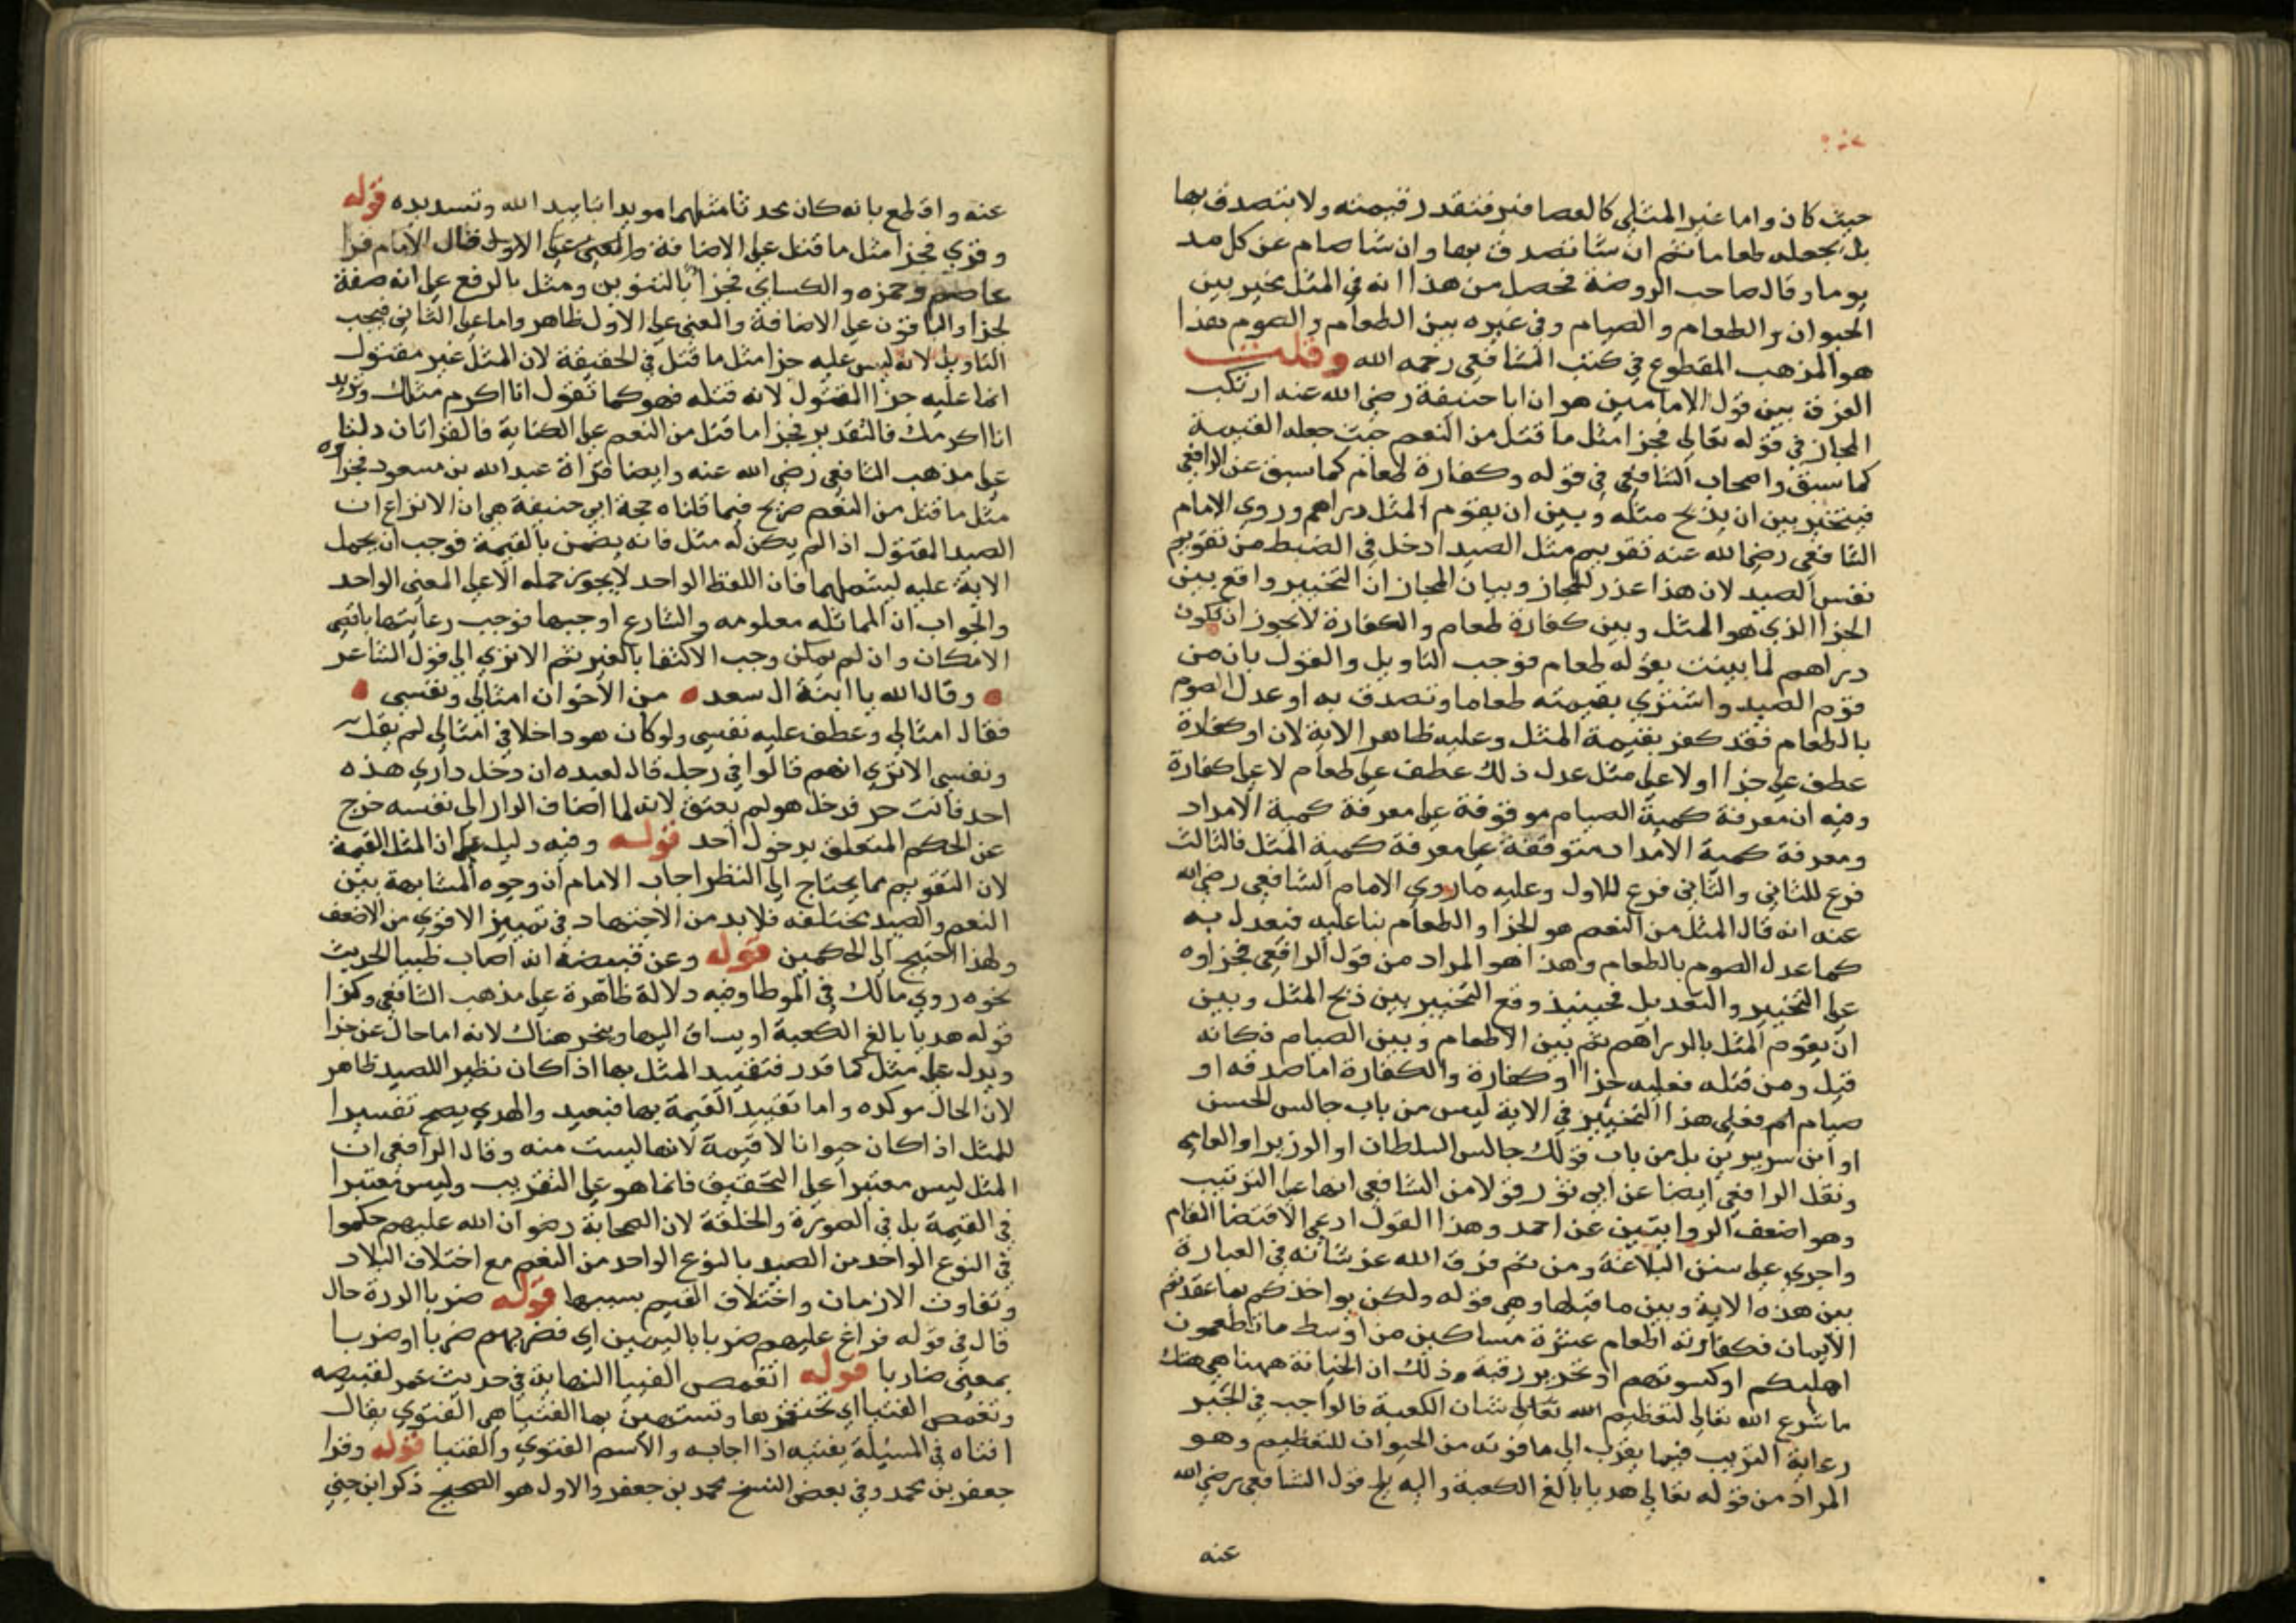 حيث كان واما غير المثلي كالعصافير فتقدر قيمته ولا يتصدق بها
بل يجعله طعاما ثم ان شا تصدق بها وان شا صام عن كل مد
يوما وقال صاحب الروضة فحصل من هذا انه في المثل يخير بين
الحيوان والطعام والصيام وفي غيره بين الطعام والصوم هذا
هو المذهب المقطوع في كتب الشافعي رحمه الله وقلت
الفرق بين قول الامامين هو ان ابا حنيفة رضي الله عنه ارتكب
المجاز في قوله تعالى فجزا مثل ما قتل من النعم حيث جعله القيمة
كما سبق واصحاب الشافعي في قوله وكفارة طعام كما سبق عن الرافعي
فيتخير بين ان يذبح مثله وبين ان يقوم المثل دراهم وروى الامام
الشافعي رضي الله عنه تقويم مثل الصيد ادخل في الضبط من تقويم
نفس الصيد لان هذا عذر للمجاز وبيان المجاز ان التخيير واقع بين
الجزا الذي هو المثل وبين كفارة طعام والكفارة لا يجوز ان تكون
دراهم لما بينت بقوله طعام فوجب التاويل والقول بان من
قوم الصيد واشترى بقيمته طعاما وتصدق به او عدل الصوم
بالطعام فقد كفر بقيمة المثل وعليه ظاهر الاية لان او كفارة
عطف على جزا اولا على مثل عدل ذلك عطف على طعام لا على كفارة
وفيه ان معرفة كمية الصيام موقوفة على معرفة كمية الامداد
ومعرفة كمية الامداد متوقفة على معرفة كمية المثل فالثالث
فرع للثاني والثاني فرع للاول وعليه ما روي الامام الشافعي رضي الله
عنه انه قال المثل من النعم هو الجزا والطعام بنا عليه فيعدل به
كما عدل الصوم بالطعام وهذا هو المراد من قول الرافعي فجزاوه
على التخيير والتعديل فحينيذ وقع التخيير بين ذبح المثل وبين
ان يقوم المثل بالدراهم ثم بين الاطعام وبين الصيام فكانه
قيل ومن قتله فعليه جزا او كفارة والكفارة اما صدقه او
صيام ثم فعلى هذا التخيير في الاية ليس من باب جالس الحسن
او ابن سيرين بل من باب قولك جالس السلطان او الوزير او العامي
ونقل الرافعي ايضا عن ابي ثور قولا من الشافعي انها على الترتيب
وهو اضعف الروايتين عن احمد وهذا القول ادعى الاقتضا المقام
واجرى على سنن البلاغة ومن ثم فرق الله عز شانه في العبارة
بين هذه الاية وبين ما قبلها وهي قوله ولكن يواخذكم بما عقدتم
الايمان فكفارته اطعام عشرة مساكين من اوسط ما تطعمون
اهليكم او كسوتهم او تحرير رقبة وذلك ان الخيانة ههنا هي هتك
ما شرع الله تعالى لتعظيم الله تعالى شان الكعبة فالواجب في الجبر
رعاية الترتيب فيما يقرب الى ما فوته من الحيوان للتعظيم وهو
المراد من قوله تعالى هديا بالغ الكعبة واليه يلمح قول الشافعي رضي الله
عنه
عنه واقطع بانه كان محدثا مثلهما مويدا بتاييد الله وتسديده قوله
وقري فجزا مثل ما قتل على الاضافة والمعنى على الاول قال الامام قرا
عاصم وحمزه والكساي فجزا بالتنوين ومثل بالرفع على انه صفة
لجزا والباقون على الاضافة والمعنى على الاول ظاهر واما على الثاني فيجب
التاويل لانه ليس عليه جزا مثل ما قتل في الحقيقة لان المثل غير مقتول
انما عليه جزا المقتول لانه قتله فهو كما تقول انا اكرم مثلك وتريد
انا اكرمك فالتقدير فجزا ما قتل من النعم على الكناية فالقراتان دلتا
على مذهب الشافعي رضي الله عنه وايضا قراة عبد الله بن مسعود فجزاوه
مثل ما قتل من النعم صريح فيما قلناه حجة ابي حنيفة هي ان لا نزاع ان
الصيد المقتول اذا لم يكن له مثل فانه يضمن بالقيمة فوجب ان يحمل
الاية عليه ليشملهما فان اللفظ الواحد لا يجوز حمله الا على المعنى الواحد
والجواب ان المماثله معلومه والشارع اوجبها فوجب رعايتها باقصى
الامكان وان لم يمكن وجب الاكتفا بالغير ثم الا ترى الى قول الشاعر
وقال الله يا ابنة ال سعد من الاخوان امثالي ونفسي
فقال امثالي وعطف عليه نفسي ولو كان هو داخلا في امثالي لم يقل
ونفسي الا ترى انهم قالوا في رجل قال لعبده ان دخل داري هذه
احد فانت حر فدخل هو لم يعتق لانه لما اضاف الدار الى نفسه خرج
عن الحكم المتعلق بدخول احد قوله وفيه دليل على ان المثل القيمة
لان التقويم مما يحتاج الى النظر اجاب الامام ان وجوه المشابهة بين
النعم والصيد مختلفه فلا بد من الاجتهاد في تمييز الاقوى من الاضعف
ولهذا احتيج الى الحكمين قوله وعن قبيصة انه اصاب ظبيا الحديث
نحوه روي مالك في الموطا وفيه دلالة ظاهرة على مذهب الشافعي وكذا
قوله هديا بالغ الكعبة او يساق اليها وينحر هناك لانه اما حال عن جزا
وبدل على مثل كما قدر فتقييد المثل بها اذا كان نظيرا للصيد ظاهر
لان الحال موكده واما تقييد القيمة بها فبعيد والهدي يصح تفسيرا
للمثل اذا كان حيوانا لا قيمة لانها ليست منه وقال الرافعي ان
المثل ليس معتبرا على التحقيق فانما هو على التقريب وليس معتبرا
في القيمة بل في الصورة والخلقة لان الصحابة رضوان الله عليهم حكموا
في النوع الواحد من الصيد بالنوع الواحد من النعم مع اختلاف البلاد
وتفاوت الازمان واختلاف القيم بسببها قوله ضربا الدرة حال
قال في قوله فراغ عليهم ضربا باليمين اي فضربهم ضربا او ضربا
بمعنى ضاربا قوله اتغمص الفتيا النهاية في حديث عمر لقبيصه
وتغمص الفتيا اي تحتقرها وتستهين بها الفتيا هي الفتوى يقال
افتاه في المسئلة يفتيه اذا اجابه والاسم الفتوى والفتيا قوله وقرا
جعفر بن محمد وفي بعض النسخ محمد بن جعفر والاول هو الصحيح ذكر ابن جني